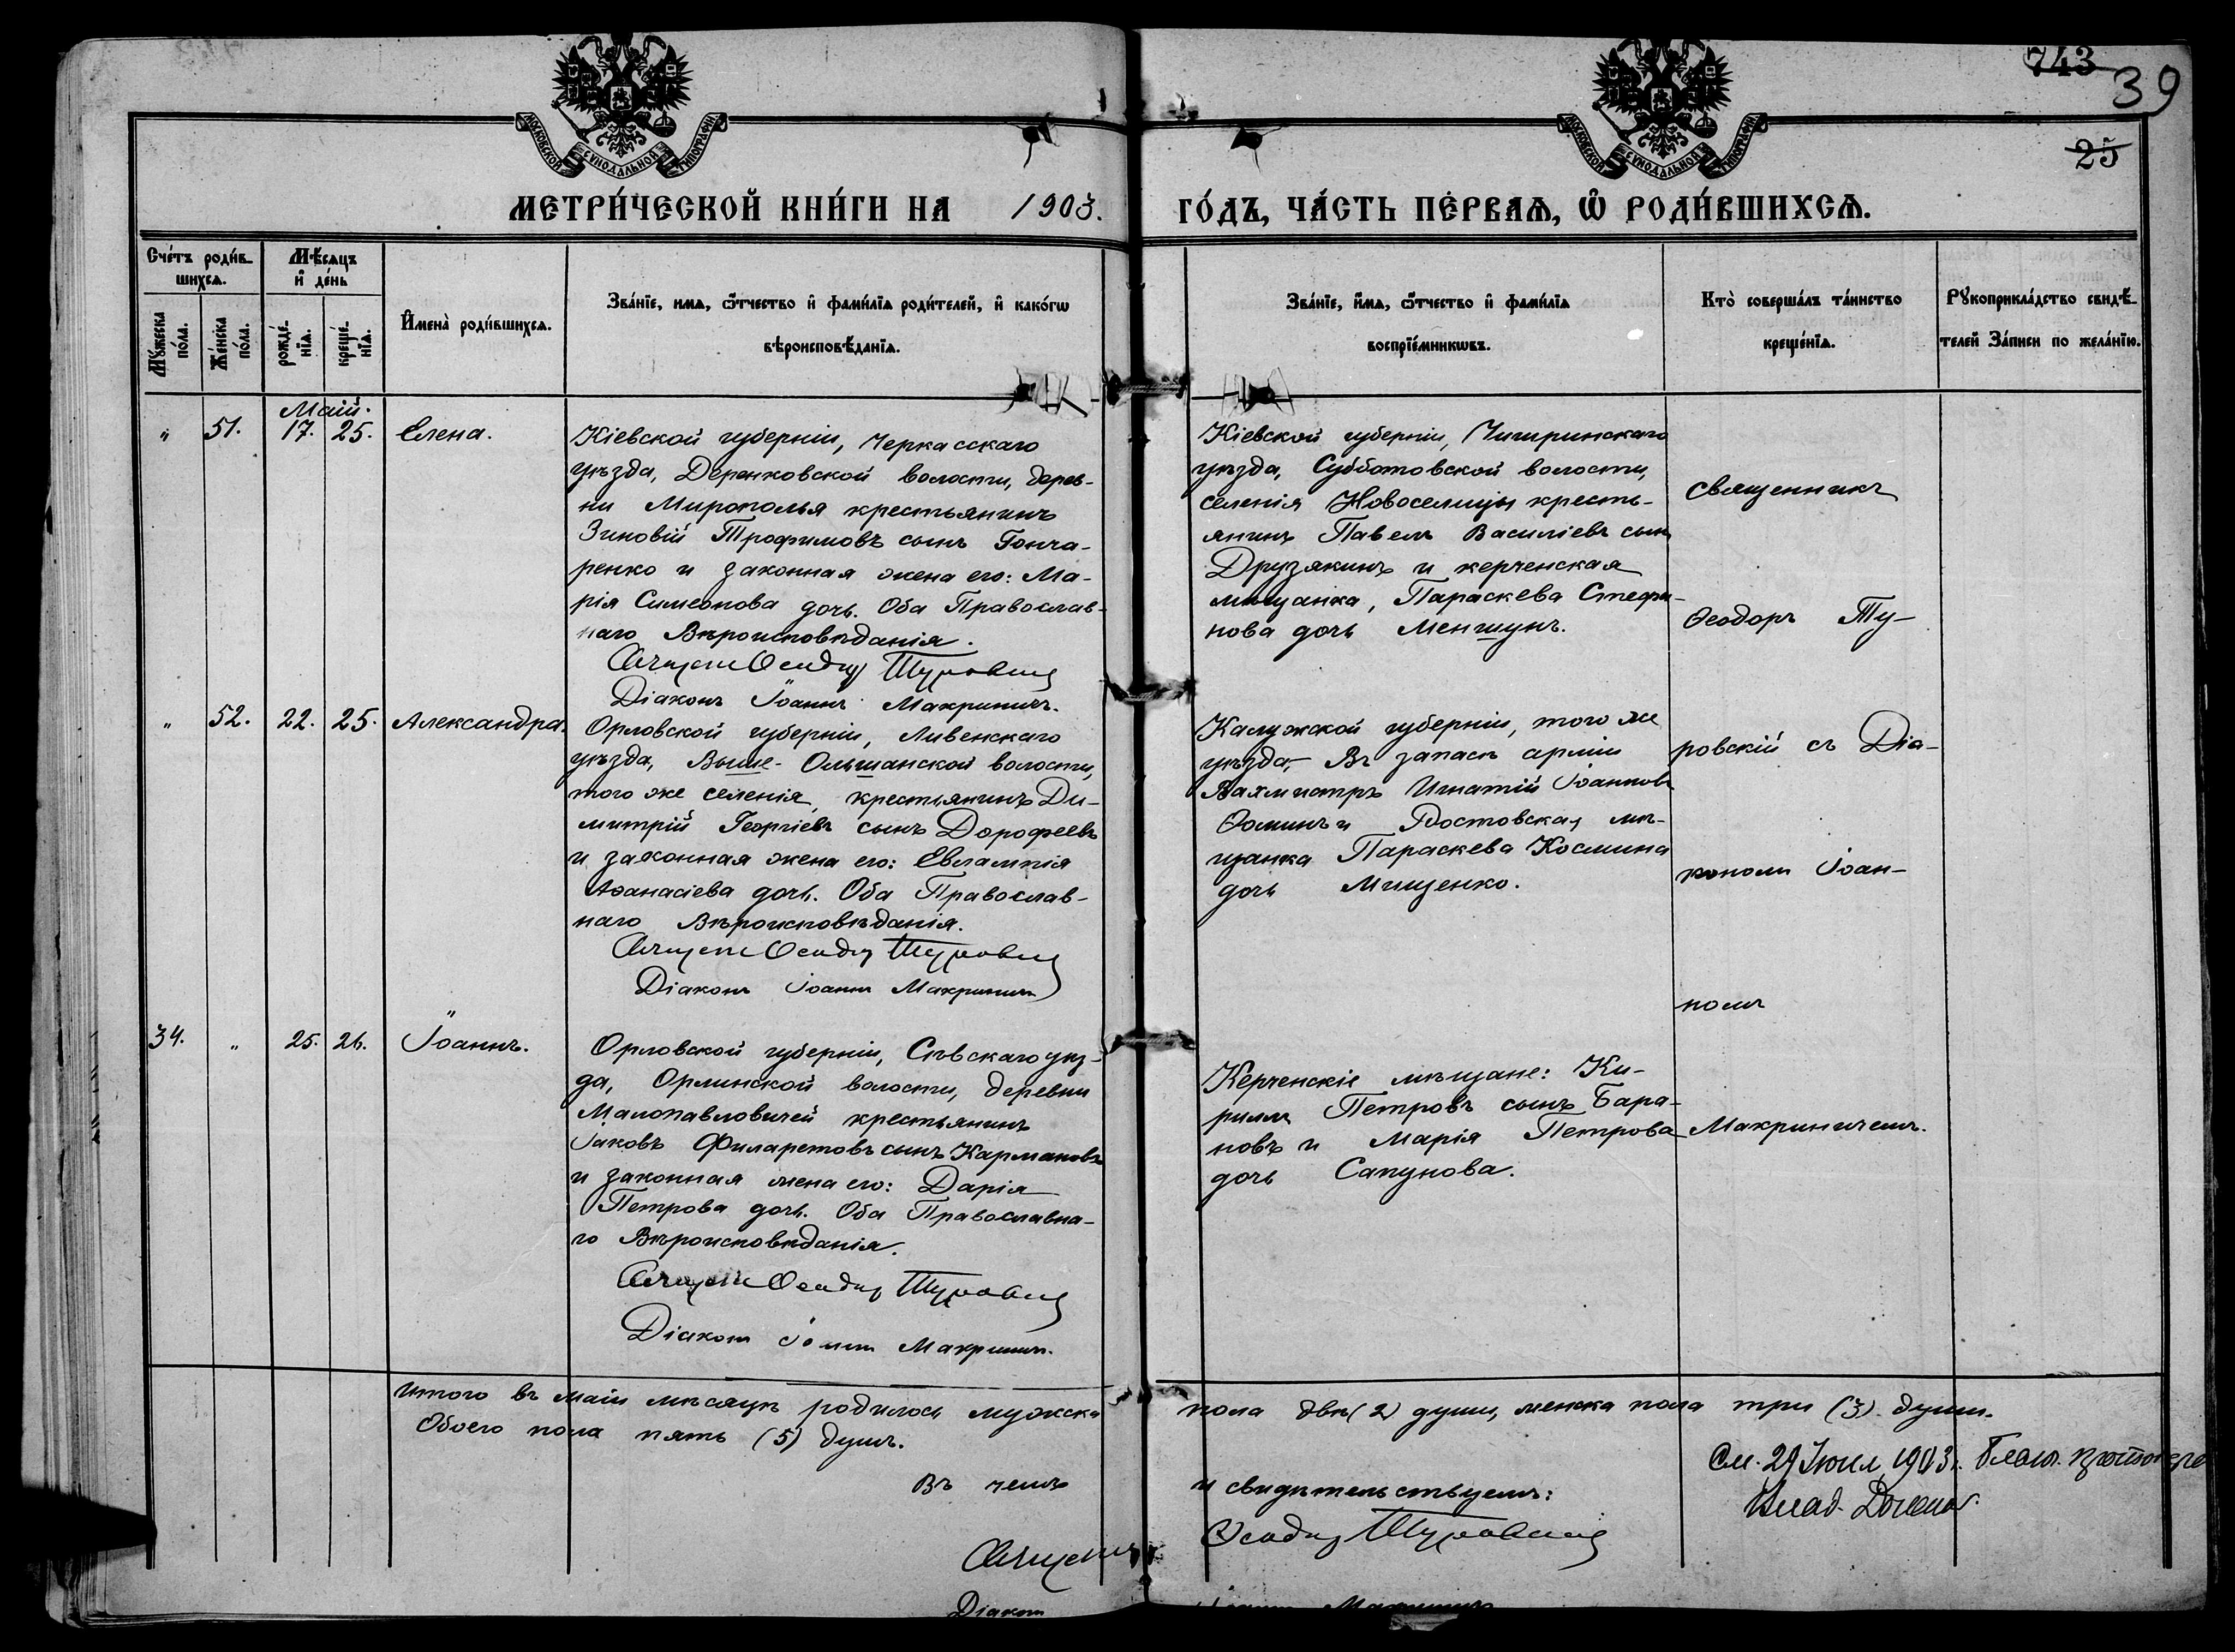 743
39
25
МОСКОВСКОЙ СѴНОДАЛЬНОЙ ТИПОГРАФІИ
МОСКОВСКОЙ СѴНОДАЛЬНОЙ ТИПОГРАФІИ
МЕТРИ́ЧЕСКОЙ КНИ́ГИ НА 1903. ГО́ДЪ, ЧА́СТЬ ПЕ́РВАѦ, Ѡ РОДИ́ВШИХСѦ.
Сче́тъ роди́в-
шихсѧ.
Мꙋ́жеска по́ла.
Же́нска по́ла.
Мѣ́сѧцъ
и҆ де́нь
рожде́-
нїѧ.
креще́-
нїѧ.
И҆мена̀ роди́вшихсѧ.
Зва́нїе, имѧ, ѻ҆́тчество и҆ фами́лїѧ роди́телей, и҆ како́гѡ
вѣроисповѣ́данїѧ.
Зва́нїе, и҆мѧ, ѻ҆́тчество и҆ фами́лїѧ
воспрїе́мникѡвъ.
Кто̀ соверша́лъ та́инство
креще́нїѧ.
Рꙋкоприкла́дство свидѣ́-
телей За́писи по жела́нїю.
Маій.
" 51. 17. 25. Елена.
Кіевской губерніи, Черкасскаго
уѣзда, Деренковской волости, дерев-
ни Мирополья крестьянинъ
Зиновій Трофимовъ сынъ Гонча-
ренко и законная жена его: Ма-
рія Симеонова дочь. Оба Православ-
наго Вѣроисповѣданія.
Священ Ѳеодоръ Туровскій
Діаконъ Іоаннъ Макриничъ.
Кіевской губерніи, Чигиринскаго
уѣзда, Субботовской волости,
селенія Новоселицы кресть-
янинъ Павелъ Василіевъ сынъ
Друзякинъ и керченская
мѣщанка, Параскева Стефа-
нова дочь Меншунъ.
Священникъ
Ѳеодоръ Ту-
" 52. 22. 25. Александра.
Орловской губерніи, Ливенскаго
уѣзда, Выше-Ольшанской волости,
того же селенія, крестьянинъ Ди-
митрій Георгіевъ сынъ Дорофеевъ
и законная жена его: Евлампія
Аѳанасіева дочь. Оба Православ-
наго Вѣроисповѣданія.
Священ Ѳеодоръ Туровскій
Діаконъ Іоаннъ Макриничъ
Калужской губерніи, того же
уѣзда,- Въ запасѣ арміи
Вахмистръ Игнатій Іоанновъ
Ѳоминъ и Ростовская мѣ-
щанка Параскева Космина
дочь Мищенко.
ровскій съ Діа-
кономъ Іоан-
номъ
34. " 25. 26. Іоаннъ.
Орловской губерніи, Сѣвскаго уѣз-
да, Орлинской волости, деревни
Малопавловичей крестьянинъ
Іаковъ Филаретовъ сынъ Кармановъ
и законная жена его: Дарія
Петрова дочь. Оба Православна-
го Вѣроисповѣданія.
Священ Ѳеодоръ Туровскій
Діаконъ Іоаннъ Макриничъ.
Керченскіе мѣщане: Ки-
риллъ Петровъ сынъ Бара-
новъ и Марія Петрова
дочь Сапунова.
Макриничемъ.
Итого въ маіи мѣсяцѣ родилось мужска пола двѣ (2) души, женска пола три (3) души.
Обоего пола пять (5) душъ.
Въ чемъ и свидѣтельствуемъ:
См. 29 Іюля 1903 г.
Влад.
Священ Ѳеодоръ Туровскій
Діаконъ Іоаннъ Макриничъ